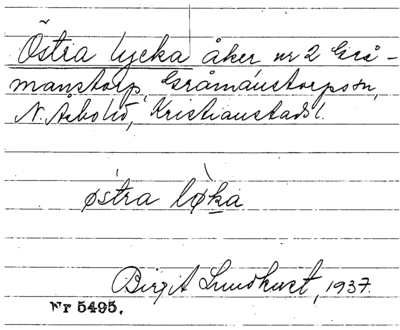 Östra lycka åker nr 2 Grå-
manstorp, Gråmanstorps sn,
N. Åsbo hd, Kristianstads l.
østra løka
Birgit Lundkvist, 1937.
Nr 5495.